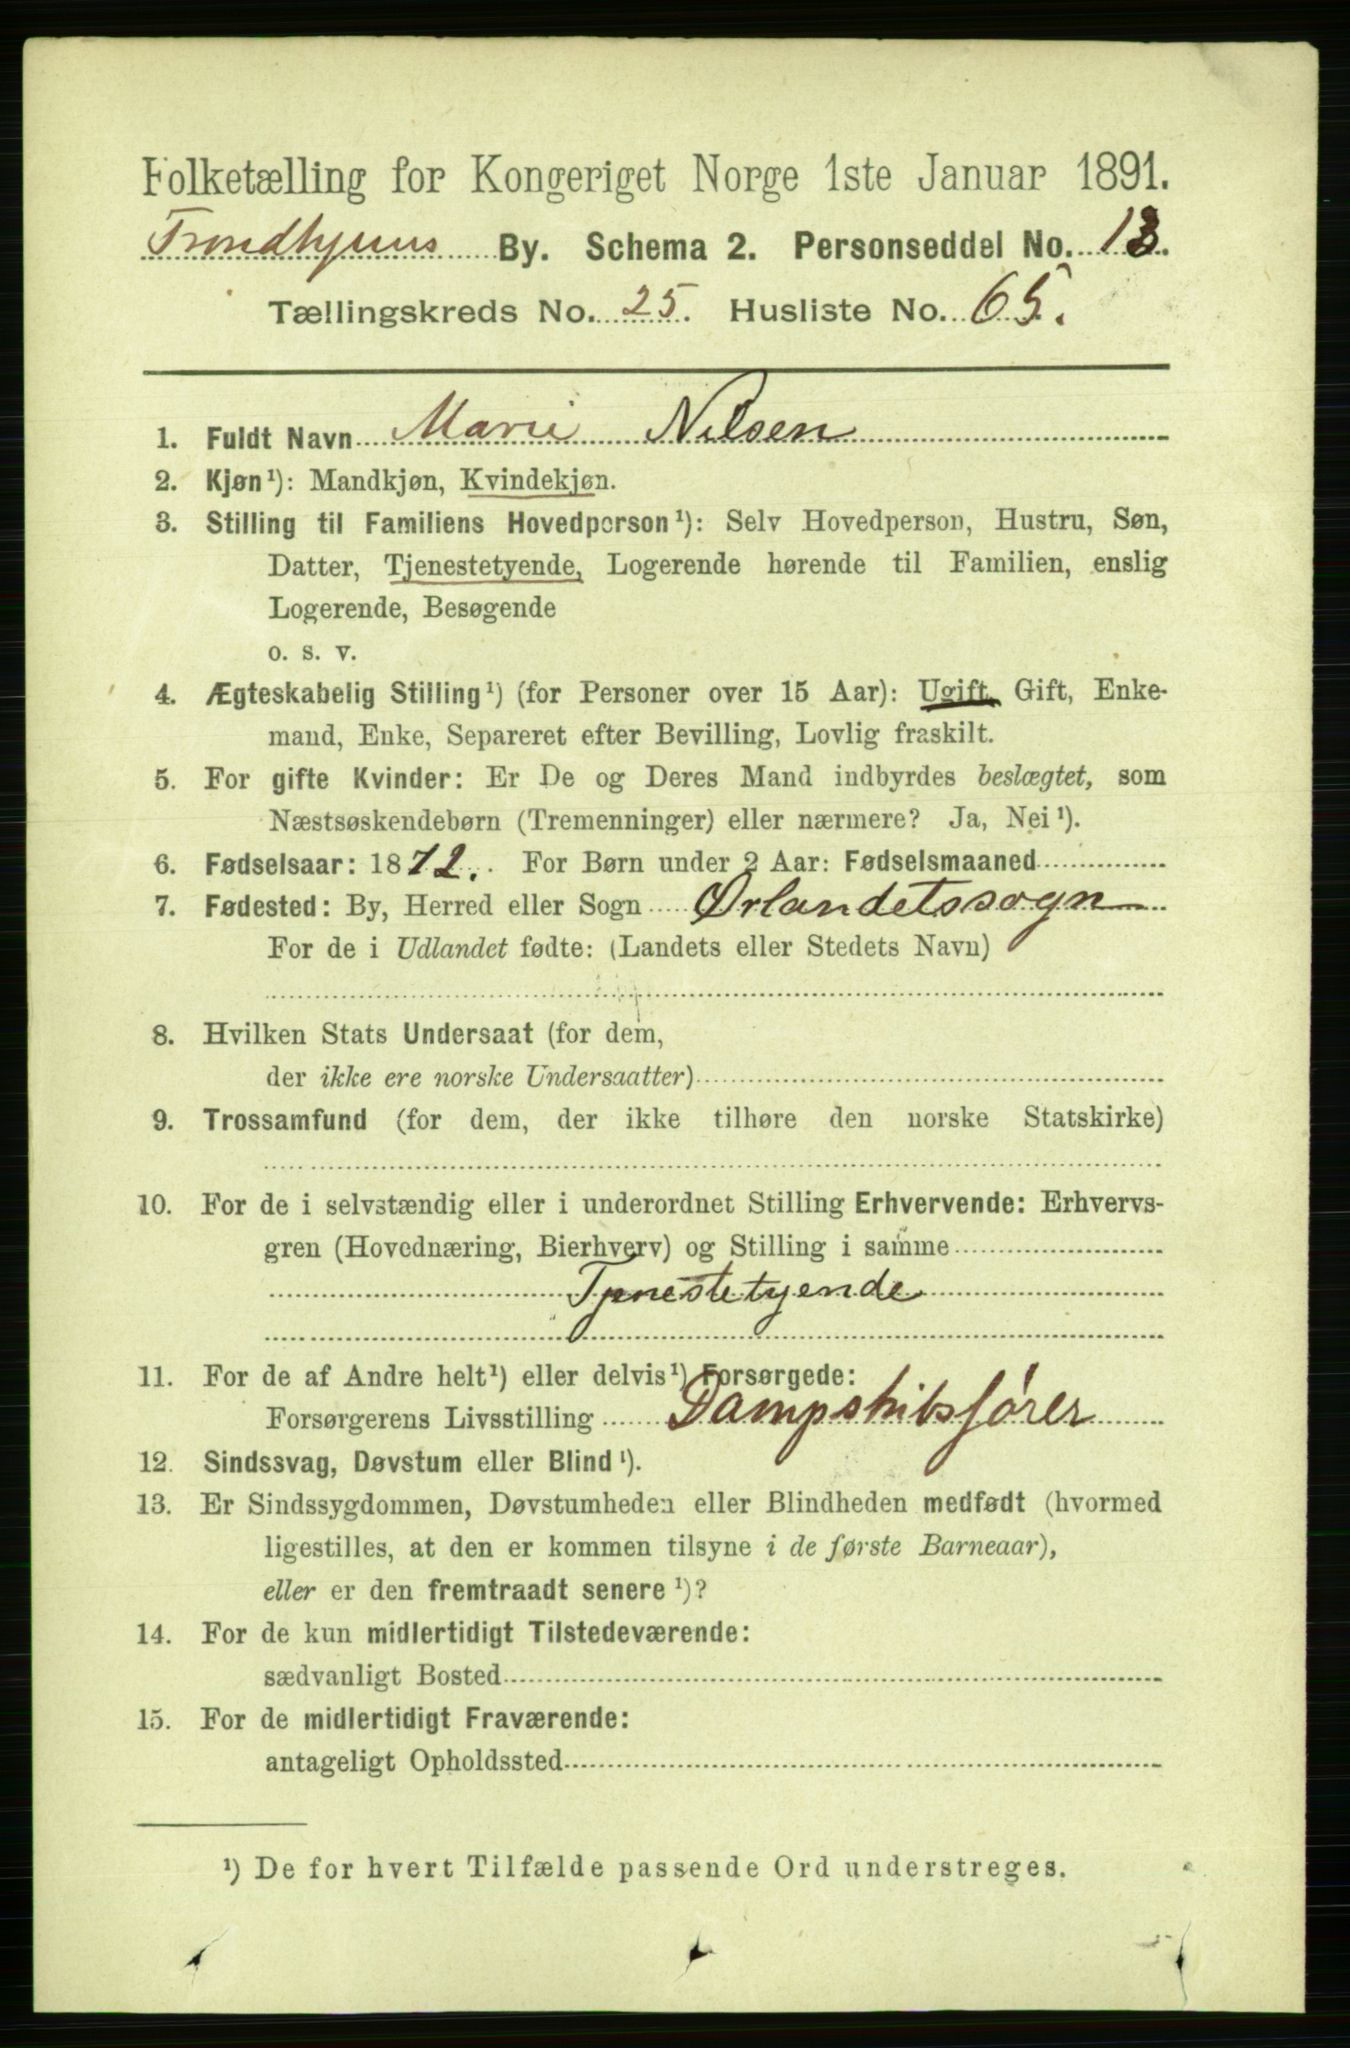 Folketælling for Kongeriget Norge 1ste Januar 1891.
Trondhjems By. Schema 2. Personseddel No. 13.
Tællingskreds No. 25. Husliste No. 65.
1. Fuldt Navn Marie Nilsen
2. Kjøn¹): Mandkjøn, Kvindekjøn.
3. Stilling til Familiens Hovedperson¹): Selv Hovedperson, Hustru, Søn,
Datter, Tjenestetyende, Logerende hørende til Familien, enslig
Logerende, Besøgende
o. s. v.
4. Ægteskabelig Stilling¹) (for Personer over 15 Aar): Ugift, Gift, Enke-
mand, Enke, Separeret efter Bevilling, Lovlig fraskilt.
5. For gifte Kvinder: Er De og Deres Mand indbyrdes beslægtet, som
Næstsøskendebørn (Tremenninger) eller nærmere? Ja, Nei¹).
6. Fødselsaar: 1872. For Børn under 2 Aar: Fødselsmaaned
7. Fødested: By, Herred eller Sogn Ørlandetssogn
For de i Udlandet fødte: (Landets eller Stedets Navn)
8. Hvilken Stats Undersaat (for dem,
der ikke ere norske Undersaatter)
9. Trossamfund (for dem, der ikke tilhøre den norske Statskirke)
10. For de i selvstændig eller i underordnet Stilling Erhvervende: Erhvervs-
gren (Hovednæring, Bierhverv) og Stilling i samme
Tjenestetyende
11. For de af Andre helt¹) eller delvis¹) Forsørgede:
Forsørgerens Livsstilling Dampskibsfører
12. Sindssvag, Døvstum eller Blind¹).
13. Er Sindssygdommen, Døvstumheden eller Blindheden medfødt (hvormed
ligestilles, at den er kommen tilsyne i de første Barneaar),
eller er den fremtraadt senere¹)?
14. For de kun midlertidigt Tilstedeværende:
sædvanligt Bosted
15. For de midlertidigt Fraværende:
antageligt Opholdssted
¹) De for hvert Tilfælde passende Ord understreges.